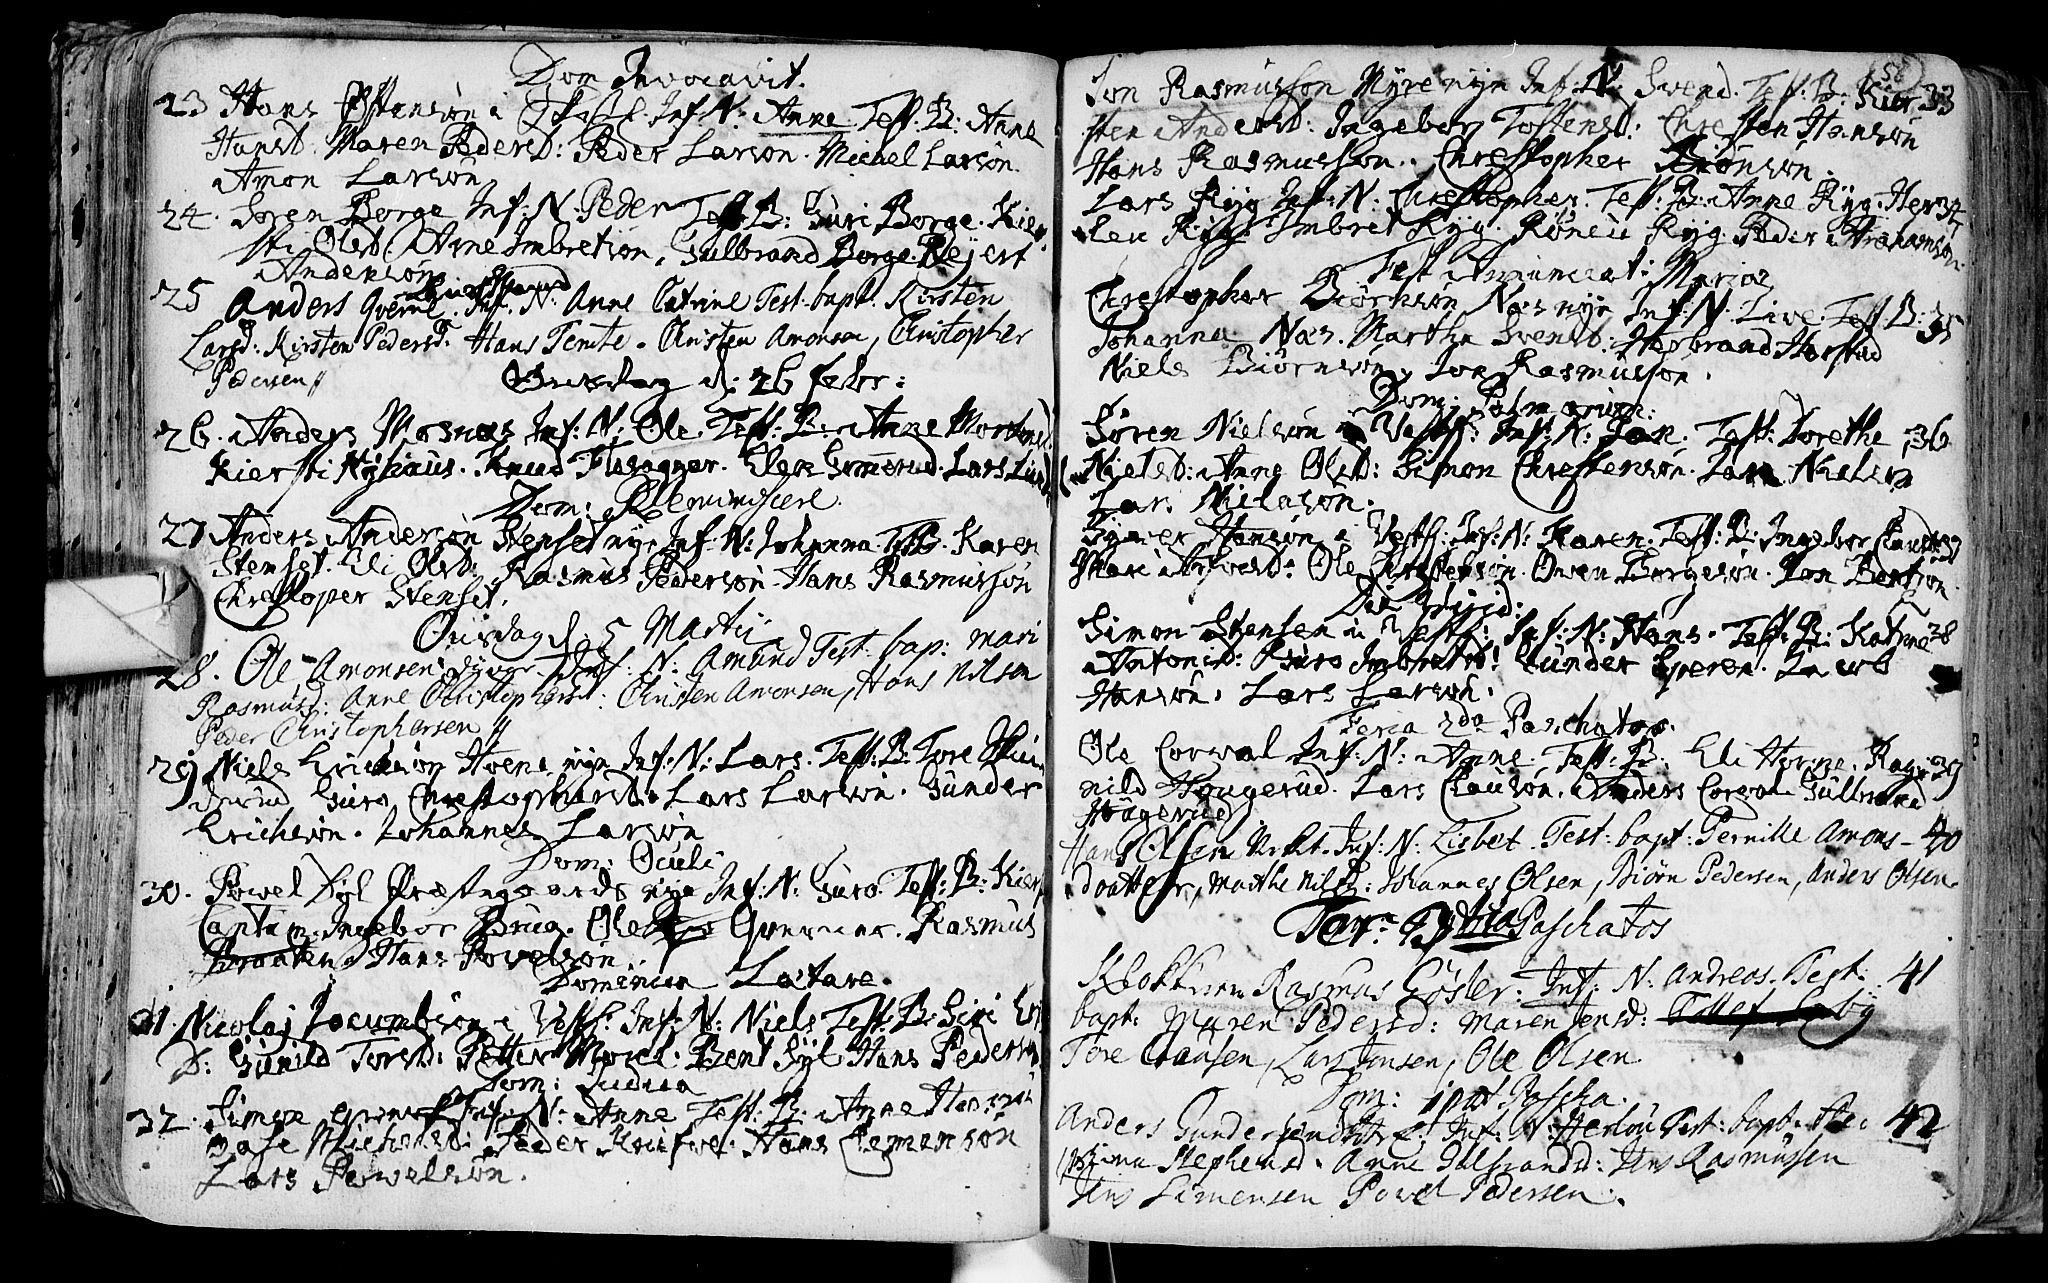 Dom Invocavit.
23 Hans Østensøn i Inf. N: Anne Test. B: Anne
Hansd. Maren Pedersd: Peder Larsøn. Michel Larsøn
Amon Larsøn
24. Søren Borge Inf: N. Peder Test. B: Guri Borge. Kier
sti Olsd. Arne Imbretsøn, Gulbrand Borge. Rejert
Andersøn
25 Anders Qverne. Inf. N: Anne Catrine Test: bapt: Kirsten
Larsd: Kirsten Pedersd: Hans Temte. Christen Amonsen, Christopher
Pedersen //
Onsdag d: 26 febr:
26. Anders Mosnæs Inf: N: Ole. Test: B: Anne Mortens
Kiersti Nyhuus. Knud Elen Lars Lund
Dom: Reminiscere
27 Anders Andersøn Stenset nye Inf: N: Johanna Test B. Karen
Stenset. Eli Olsd: Rasmus Pedersøn. Hans Rasmussøn
Christopher Stenset.
Onsdag d. 5 Martij
28. Ole Amonsen Inf: N: Amund Test: bap: Mari
Rasmusd: Anne Christophersd: Christen Amonsen, Hans Nilsen
Peder Christophersen //
29 Niels Erichsøn Hvene nye Inf: N: Lars. Test: B: Tore
Guro Christophersd. Lars Larsøn. Gunder
Erichsøn. Johannes Larsøn
Dom: Oculi
30. Powel Syl Præstegaards nye Inf: N: Guro. Test: B: Kier
Ingebor Brug. Ole Qverner. Rasmus
Braaten. Hans Powelsøn
Dominica Lætare.
31. Nicolaj Jacumbsøn i Vestf: Inf: N: Niels Test: B: Siri Er
D: Gunild Torsd: Petter Moriel. Bent Syl Hans Pedersøn
Dom: Judica
32. Simen Inf: N: Anne Test: B: Anne
Aase Michelsd: Peder Hans Clemensøn
Lars Powelsøn.
58
Jon Rasmussøn Myre nye Inf: N: Svend. Test: B: Kier 33
sten Andersd: Ingebor Tostensd: Christen Hansøn
Hans Rasmussøn. Christopher Biønsøn.
Lars Ryg Inf: N: Christopher. Test: B: Anne Ryg. Her 34
len Ryg Imbret Ryg. Rønew Ryg. Peder Abrahamsøn
Fest Annunciat: Mariæ
Christopher Biørnsøn Næs nye Inf: N: Live. Test B: 35
Johanna Næs. Martha Svensd: Herbrand Horstad
Niels Biørnsøn. Jon Rasmussøn.
Dom: Palmarum.
Søren Nielsøn i Vestf: Inf: N: Jan. Test: Dorethe 36
Nielsd: Anne Olsd: Simon Christensøn. Jan Nielsøn
Lars Nielssøn.
Hansøn i Vestf: Inf: N: Karen. Test: B: Ingebor 37
Mari Ole Christensøn. Owen Borgesøn. Jon Bentsøn.
Simon Stensen i Vestf: Inf: N: Hans. Test: B: Katrine 38
Antonisd: Guro Imbretsd: Gunder Speren. Jacob
Hansøn. Lars Larsøn.
Feria 2da Paschatos.
Ole Corval Inf: N: Anne. Test: B. Eli Horne. Rag 39
nild Haugerud. Lars Clausøn. Anders Corval. Gulbrand
Haugerud
Hans Olsen Inf: N: Lisbet. Test: bapt: Pernille Amons- 40
daatter, Marthe Nilsd: Johannes Olsen, Biørn Pedersen, Anders Olsen.
Fer: 3tia Paschatos
Klokkeren Rasmus Gøsler: Inf: N. Andreas. Test: 41
bapt: Maren Pedersd: Maren Jensd:
Tore Clausen, Lars Jensen, Ole Olsen
Dom: 1 post Pascha.
Anders Gundersen Inf: N: Test: bapt: 42
Stephensd. Anne Gulbrandsd: Jens Rasmussen
Jens Simensen Powel Pedersen.